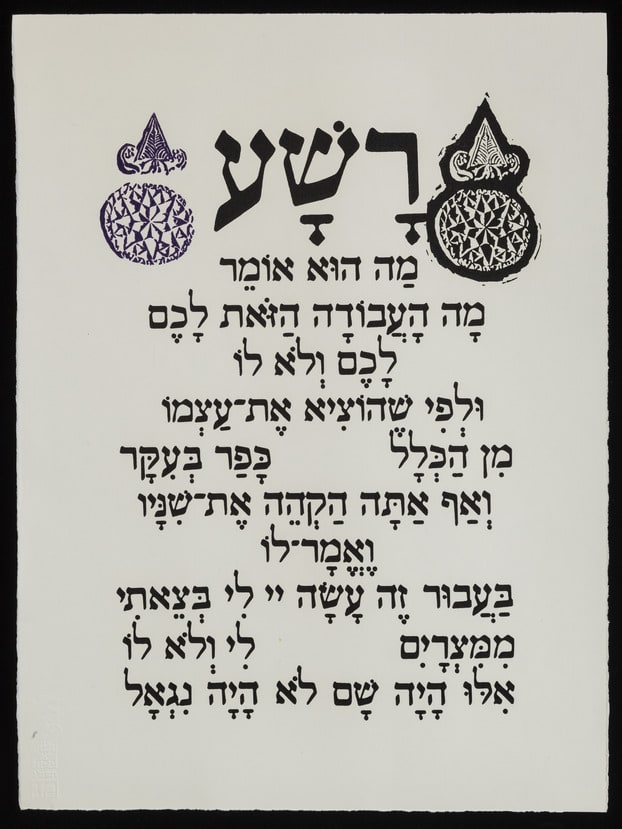 רָשָׁע
מַה הוּא אוֹמֵר
מָה הָעֲבוֹדָה הַזֹּאת לָכֶם
לָכֶם וְלֹא לוֹ
וּלְפִי שֶׁהוֹצִיא אֶת־עַצְמוֹ
מִן הַכְּלָל כָּפַר בְּעִקָּר
וְאַף אַתָּה הַקְהֵה אֶת־שִׁנָּיו
וֶאֱמָר־לוֹ
בַּעֲבוּר זֶה עָשָׂה יי לִי בְּצֵאתִי
מִמִּצְרָיִם לִי וְלֹא לוֹ
אִלּוּ הָיָה שָׁם לֹא הָיָה נִגְאָל